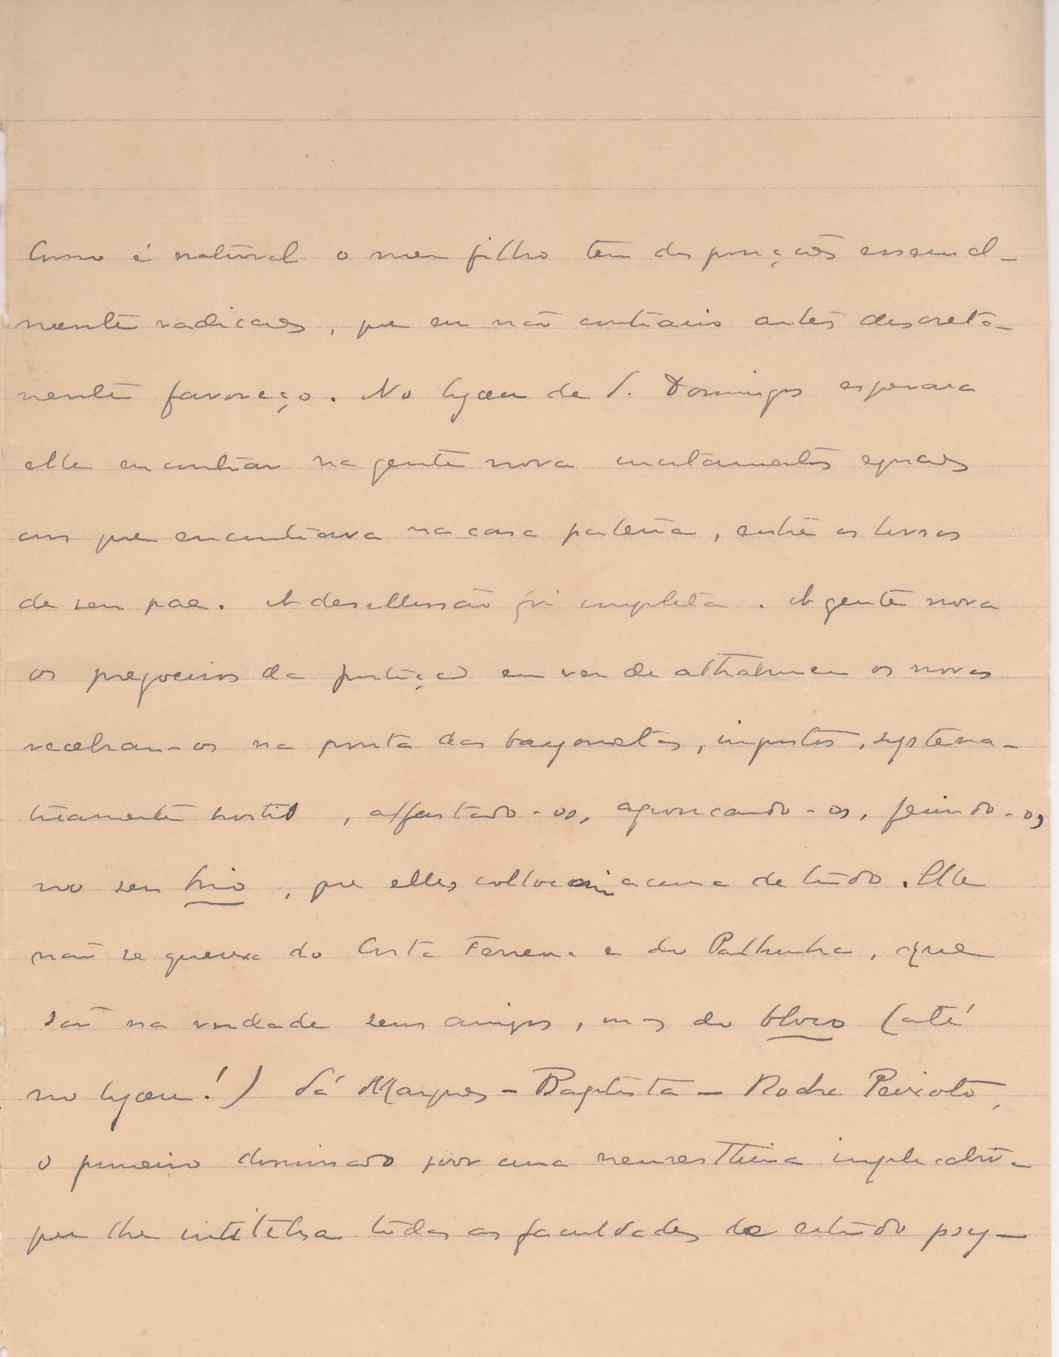 Como é natural o meu filho tem disposições essencial-
mente radicaes, que eu não contrario antes discreta-
mente favoreço. No lyceu de S. Domingos esperava
elle encontrar na gente nova incitamentos eguaes
aos que encontrava na casa paterna, entre os livros
de seu pae. A desillusão foi completa. A gente nova
os pregoeiros da justiça em vez de attrahirem os novos
recebiam-os na ponta das bayonetas, injustos, systema-
ticamente hostis, affastado-os, ferindo-os,
no seu brio, que elles collocam acima de tudo. Elle
não se queixa do Costa Ferreira e do Palhinha, que
são na verdade seus amigos, mas do bloco (até
no lyceu!) Sá Marques - Baptista - Rocha Peixoto,
o primeiro dominado por uma neurasthenia implacavel
que lhe todas as faculdades de estudo psy-